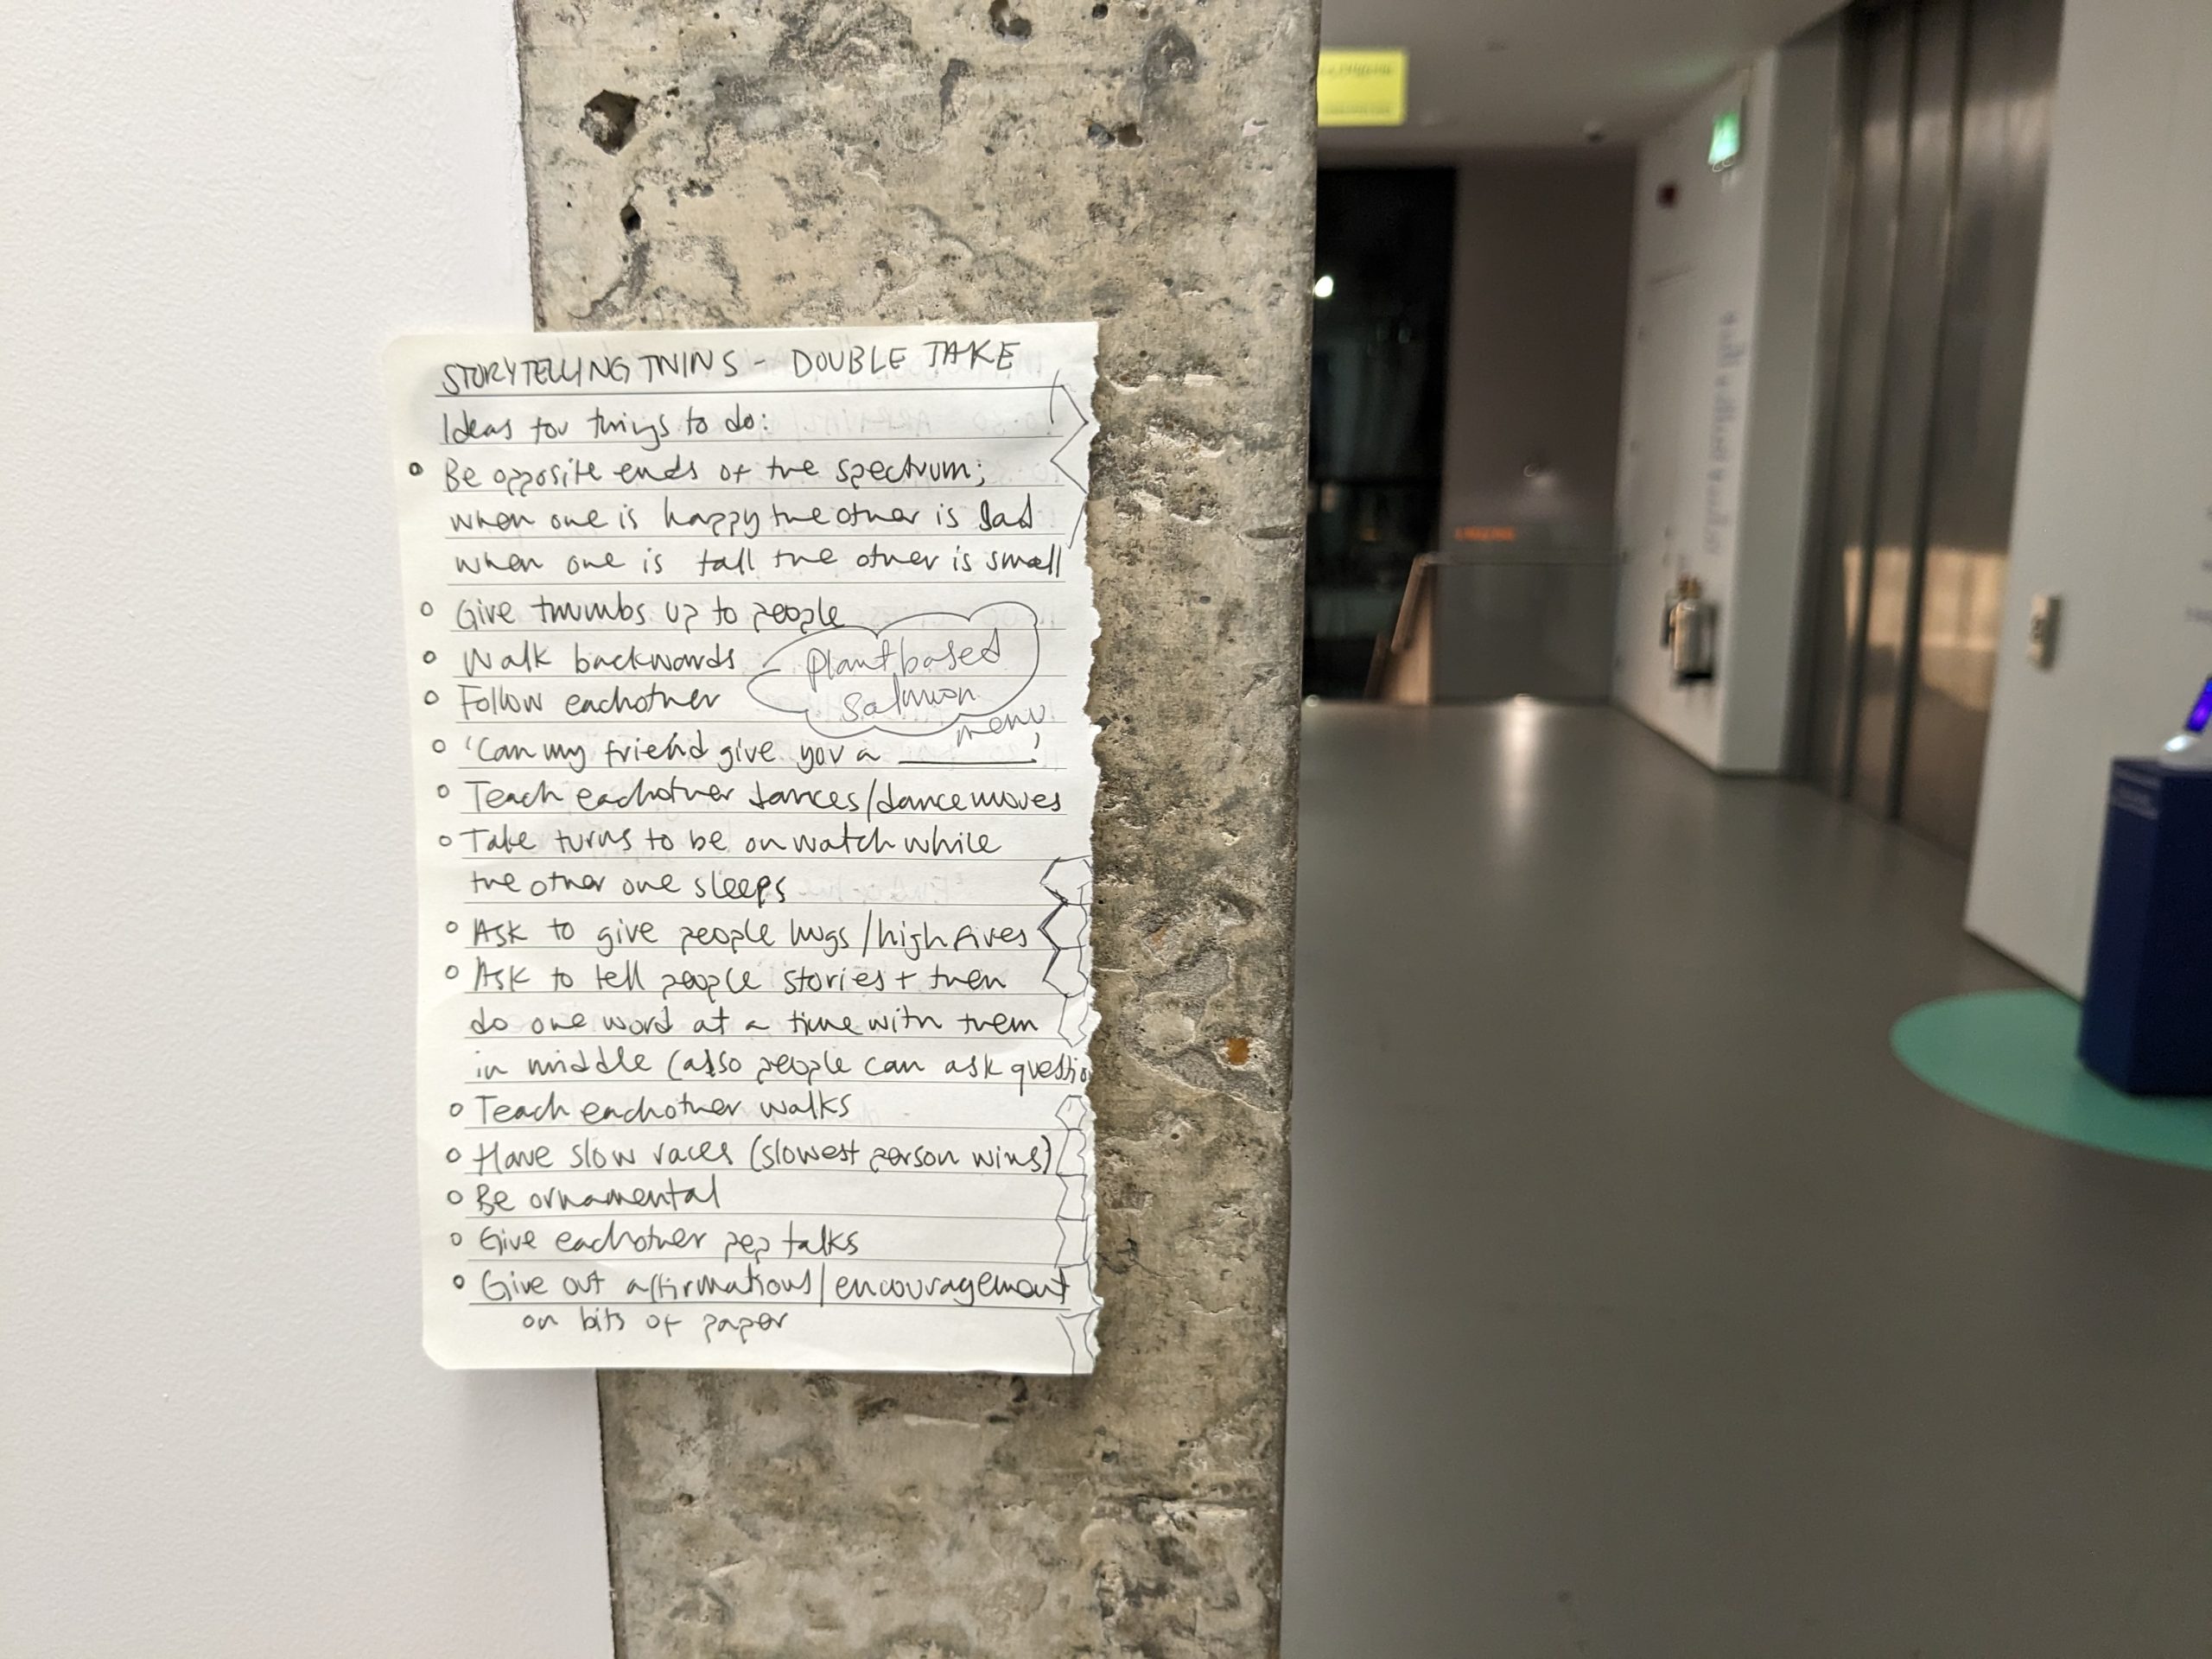 STORYTELLING TWINS - DOUBLE TAKE
Ideas for things to do:
Be opposite ends of the spectrum;
when one is happy the other is sad
when one is tall the other is small
Give thumbs up to people
Walk backwards
Follow eachother
Plant based
Salmon
menu
'Can my friend give you a ______'
Teach eachother dances/dance moves
Take turns to be on watch while
the other one sleeps
Ask to give people hugs/high fives
Ask to tell people stories + then
do one word at a time with them
in middle (also people can ask questio
Teach eachother walks
Have slow races (slowest person wins)
Be ornamental
Give eachother pep talks
Give out affirmations/encouragement
on bits of paper